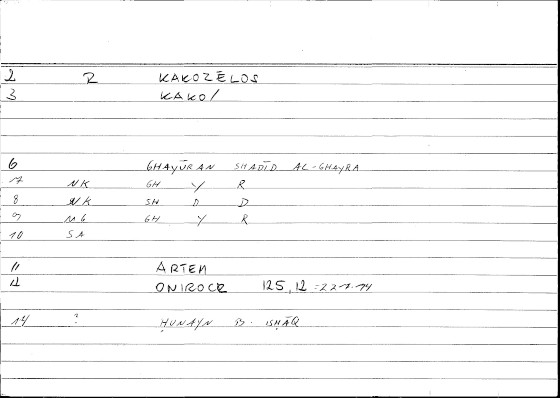 2 R KAKOZĒLOS
3 KAKO/
6 GHAYŪRAN SHADĪD AL-GHAYRA
7 NK GH Y R
8 NK SH D D
9 MG GH Y R
10 SA
11 ARTEM
12 ONIROCR 125,12 =227.14
14 ? ḤUNAYN B. ISḤĀQ